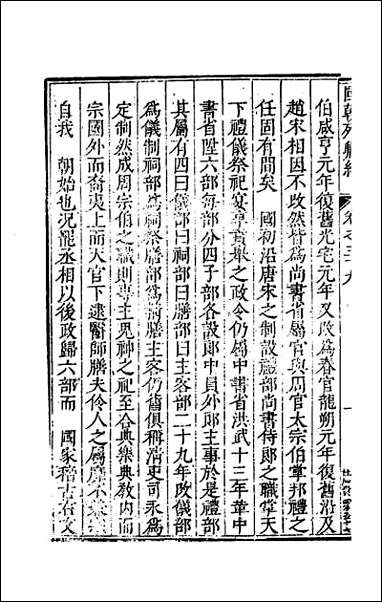 國朝列卿紀 卷之三十九 一
伯咸亨元年復舊光宅元年又改為春官龍朔元年復舊沿及
趙宋相因不改然皆為尚書省屬官與周官大宗伯掌邦禮之
任固有間矣 國初沿唐宋之制設禮部尚書侍郎之職掌天
下禮儀祭祀宴享貢舉之政令仍屬中書省洪武十三年革中
書省陞六部每部分四子部各設郎中員外郎主事於是禮部
其屬有四曰儀部曰祠部曰膳部曰主客部二十九年改儀部
為儀制祠部為祠祭膳部為精膳主客仍舊俱稱清吏司永為
定制然成周宗伯之職則專主鬼神之祀至合典樂典教內而
宗國外而裔夷上而天官下逮醫師膳夫伶人之屬靡不兼之
自我 朝始也況罷丞相以後政歸六部而 國家稽古右文